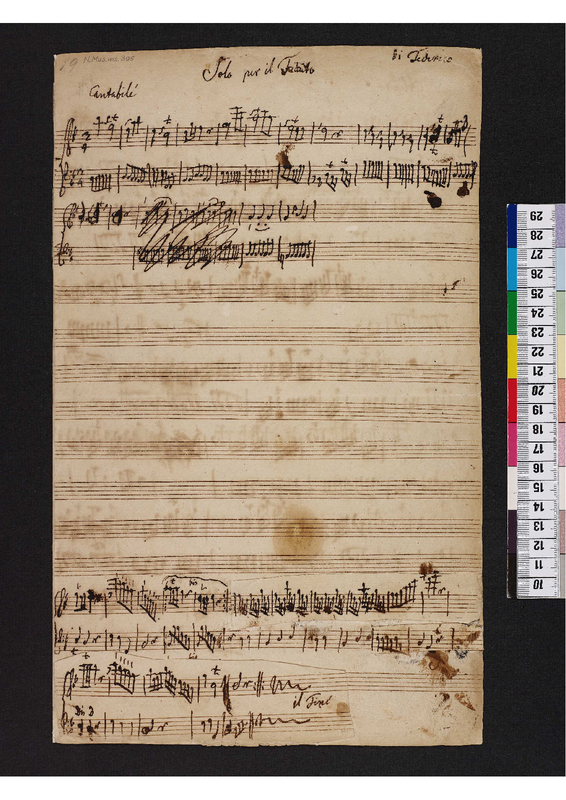 N.Mus.ms. 305
Di Federico
Solo per il Flauto
Cantabilé
il Fine
29
28
27
26
25
24
23
22
21
20
19
18
17
16
15
14
13
12
11
10